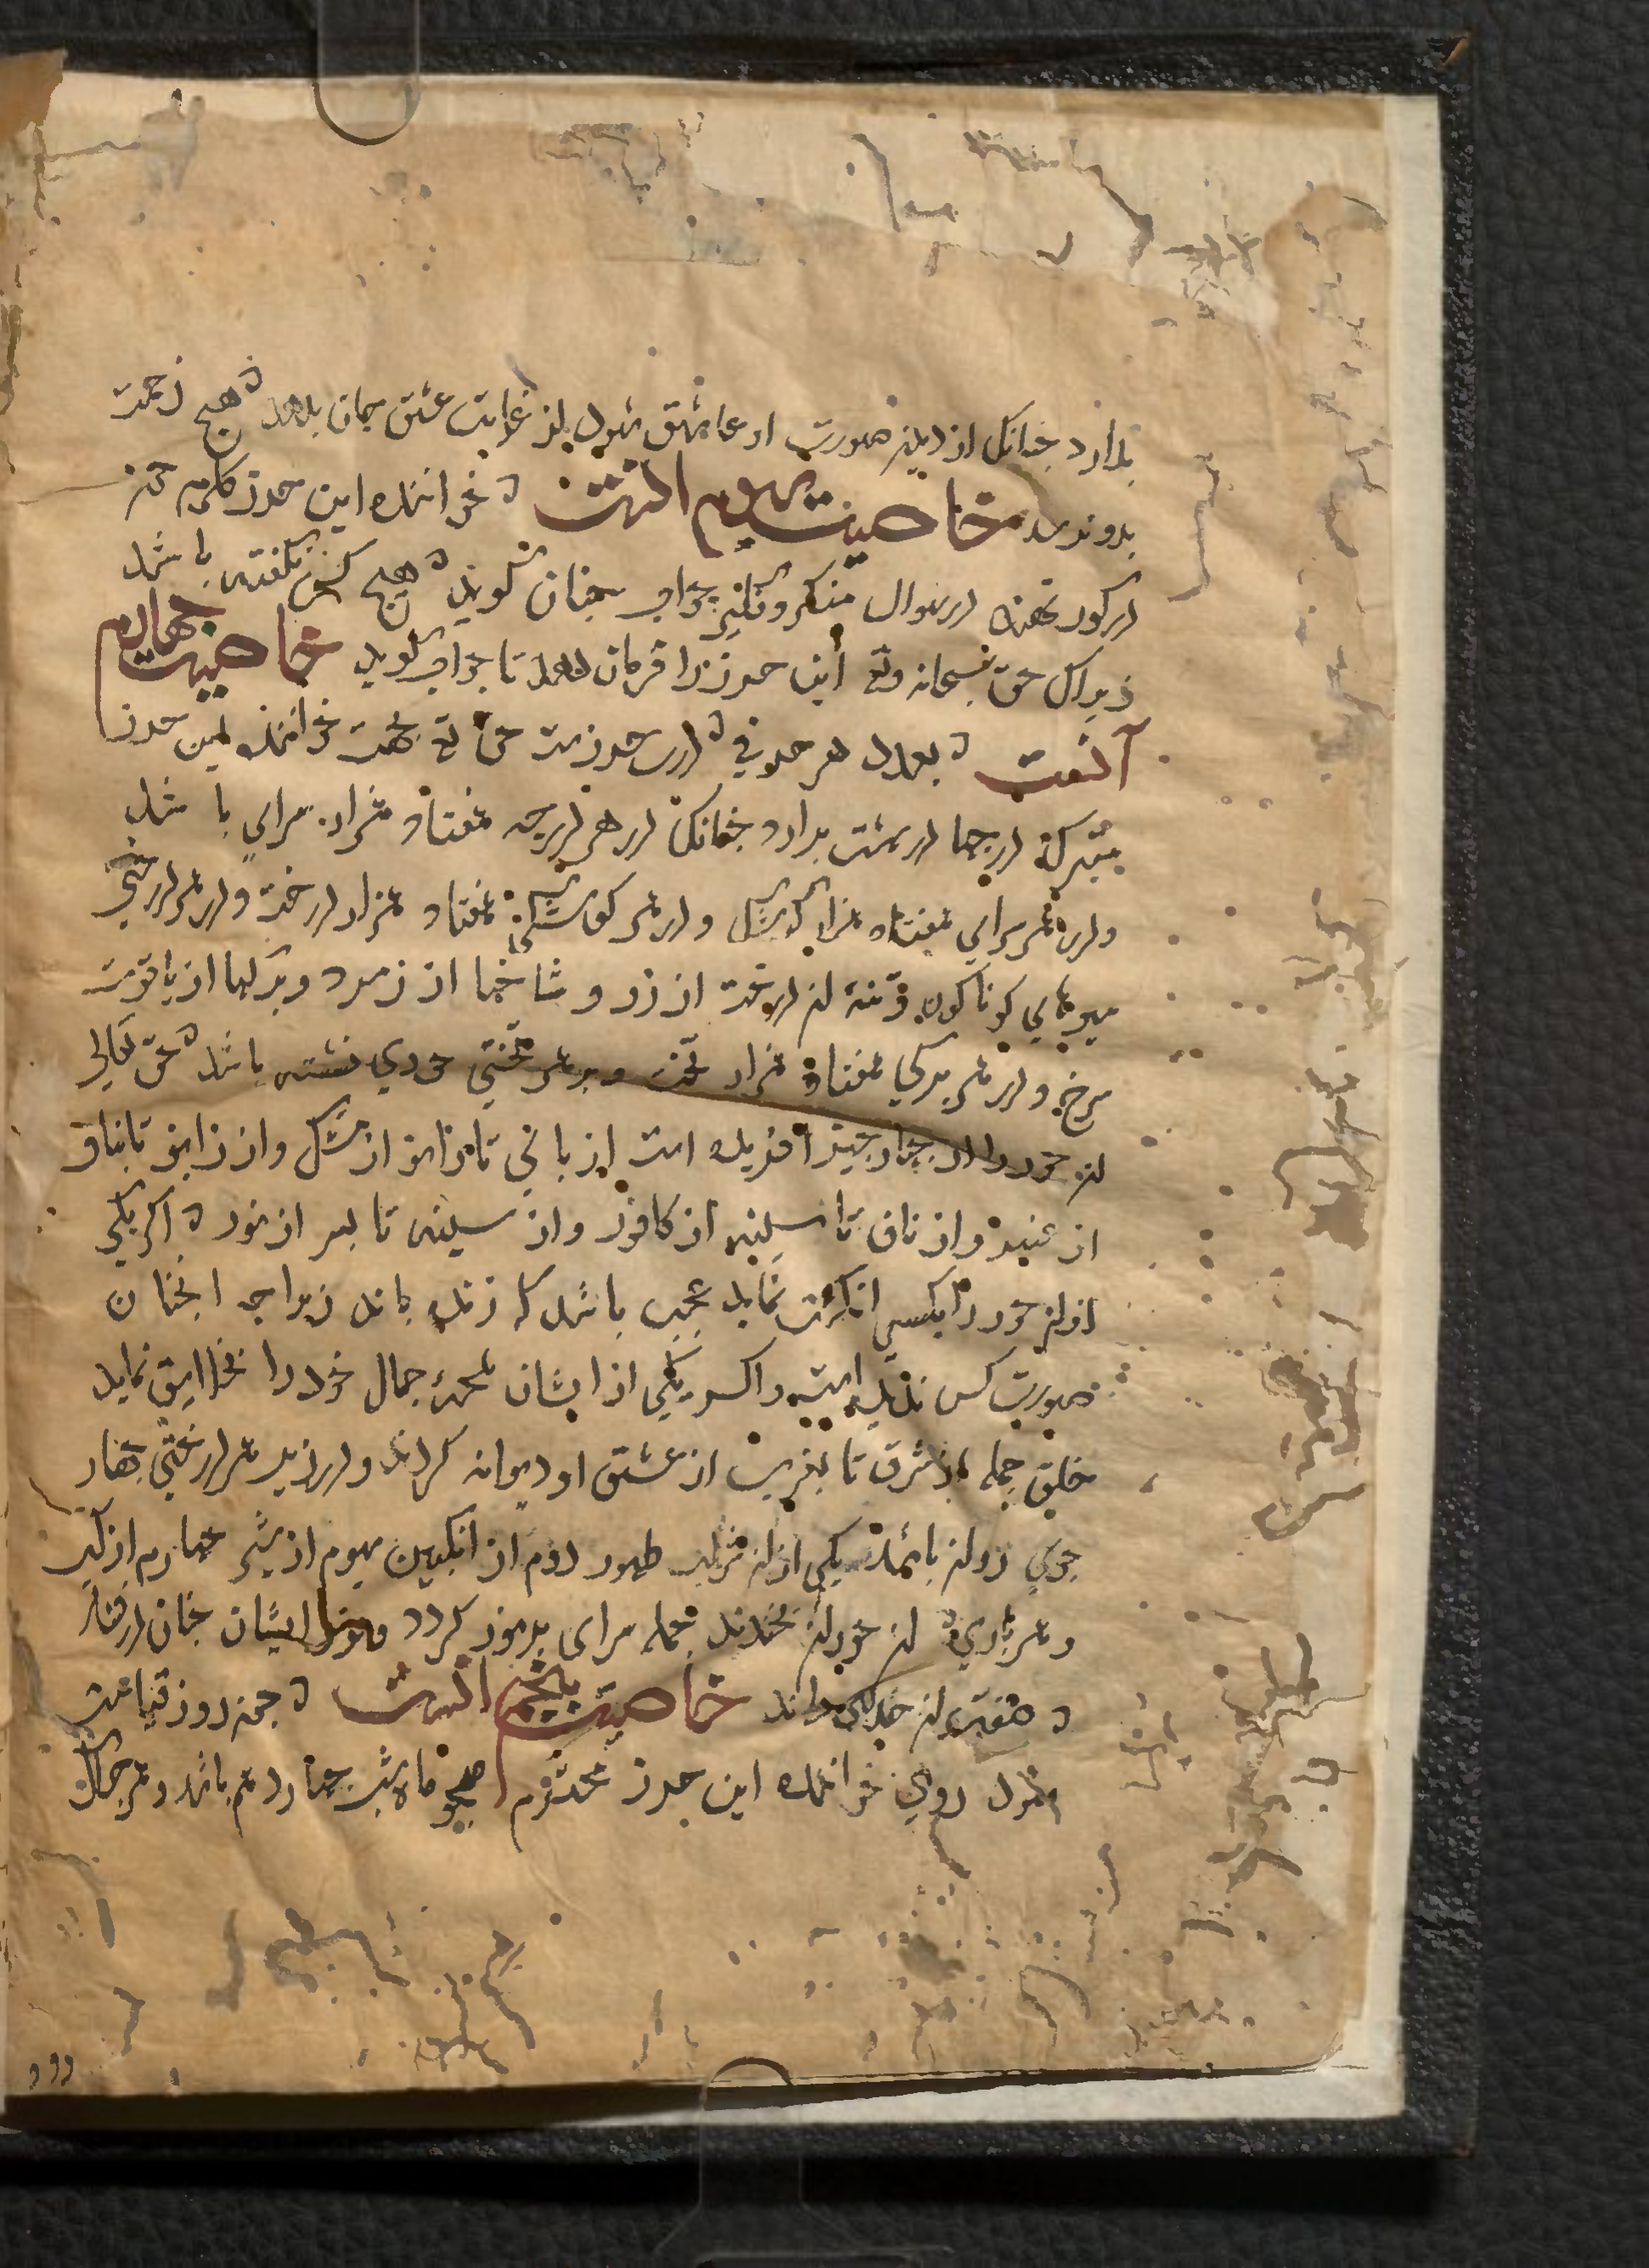 بدارد چنانک از دیدن صورت او عاشق شود از غایت عشق جان بدهد ه هیچ زحمت
بدو نرسد خاصیت سوم انست ه خواننده این حرز کلام حق
در کور نهند در سوال منکر و نکیر جواب چنان کوید ه هیچ کس نکفته باشد
زیراک حق سبحانه وتع این حرز را فرمان دهد تا جواب کوید خاصیت چهارم
آنست ه بعدد هر حرفی ه درین حرزست حق تع بجهت خواننده این حرز
متبرکه درجها در بهشت بدارد چنانک در هر درجه هفتاد هزار سرای باشد
ودر هر سرای هفتاد هزار کوشک ودر هر کوشکی هفتاد هزار درخت ودر هر درختی
میوهای کوناکون وتنهٔ ان درخت از زر و شاخها از زمرد وبرکها از یاقوت
سرخ ودر هر برکی هفتاد هزار تخت وبر هر تختی حوری نشسته باشد ه حق تعالی
ان حور را از چهار چیز افریده است از پای تا زانو از مشک واز زانو تا ناف
از عنبر واز ناف تا سینه از کافور واز سینه تا بسر از نور ه اکر یکی
از ان حور را بکسی انکشت نماید عجب باشد که زنده ماند زیرا چه انچنان
صورت کس ندیده است واکر یکی از ایشان لمحهٔ جمال خود را بخلایق نماید
خلق جمله از شرق تا بغرب از عشق او دیوانه کردند ودر زیر هر درختی چهار
جوی روان باشد یکی از ان شراب طهور دوم از انکبین سیوم از شیر چهارم از
وهر باری ه ان حوران بخندند جمله سرای پرنور کردد ایشان چنان در رفتار
ه صفت ان خدای داند خاصیت پنجم انست ه چون روز قیامت
شود روی خواننده این حرز محترم همچو ماه شب چهاردهم باشد وهر